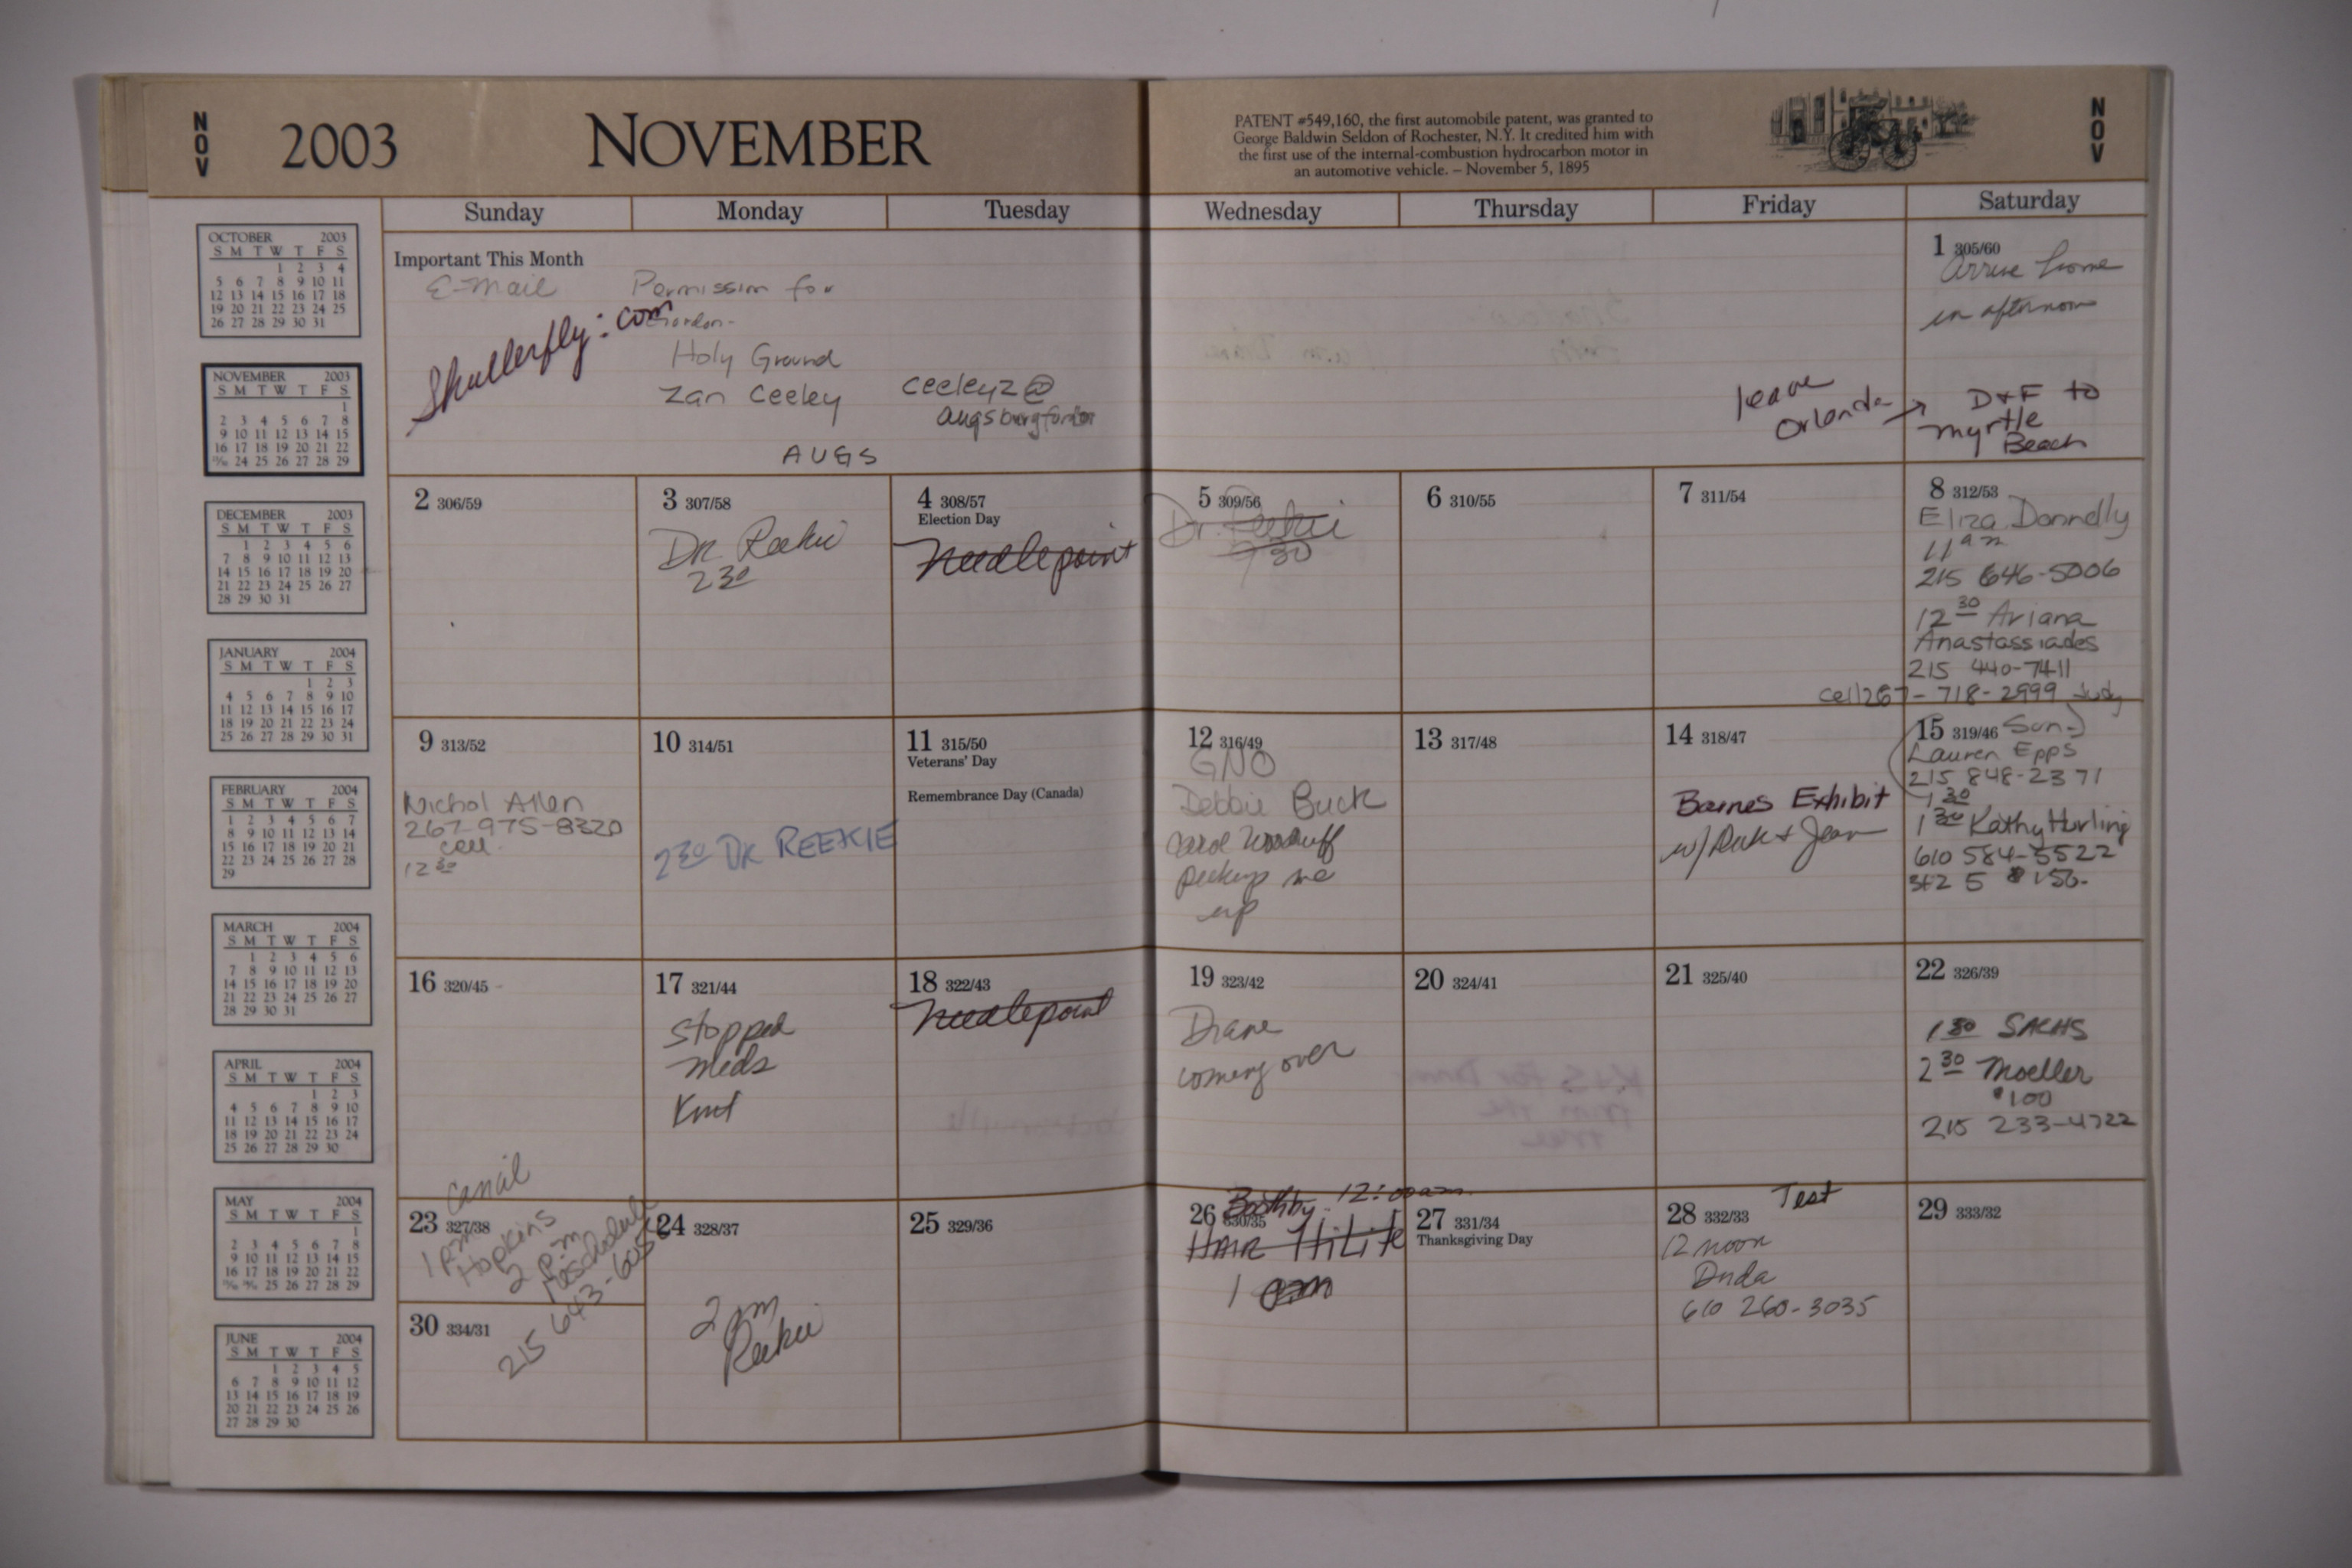 NOV
2003
NOVEMBER
PATENT #549,160, the first automobile patent, was granted to
George Baldwin Seldon of Rochester, N.Y. It credited him with
the first use of the internal-combustion hydrocarbon motor in
an automotive vehicle. – November 5, 1895
NOV
Sunday Monday Tuesday Wednesday Thursday Friday Saturday
OCTOBER 2003
S M T W T F S
1 2 3 4
5 6 7 8 9 10 11
12 13 14 15 16 17 18
19 20 21 22 23 24 25
26 27 28 29 30 31
NOVEMBER 2003
S M T W T F S
1
2 3 4 5 6 7 8
9 10 11 12 13 14 15
16 17 18 19 20 21 22
23/30 24 25 26 27 28 29
DECEMBER 2003
S M T W T F S
1 2 3 4 5 6
7 8 9 10 11 12 13
14 15 16 17 18 19 20
21 22 23 24 25 26 27
28 29 30 31
JANUARY 2004
S M T W T F S
1 2 3
4 5 6 7 8 9 10
11 12 13 14 15 16 17
18 19 20 21 22 23 24
25 26 27 28 29 30 31
FEBRUARY 2004
S M T W T F S
1 2 3 4 5 6 7
8 9 10 11 12 13 14
15 16 17 18 19 20 21
22 23 24 25 26 27 28
29
MARCH 2004
S M T W T F S
1 2 3 4 5 6
7 8 9 10 11 12 13
14 15 16 17 18 19 20
21 22 23 24 25 26 27
28 29 30 31
APRIL 2004
S M T W T F S
1 2 3
4 5 6 7 8 9 10
11 12 13 14 15 16 17
18 19 20 21 22 23 24
25 26 27 28 29 30
MAY 2004
S M T W T F S
1
2 3 4 5 6 7 8
9 10 11 12 13 14 15
16 17 18 19 20 21 22
23/30 24/31 25 26 27 28 29
JUNE 2004
S M T W T F S
1 2 3 4 5
6 7 8 9 10 11 12
13 14 15 16 17 18 19
20 21 22 23 24 25 26
27 28 29 30
Important This Month
E-Mail Permission for
Shutterfly:com
Gordon-
Holy Ground
Zan Ceeley ceeleyz@
augsburgfortress
AUGS
leave
Orlando →
1 305/60
Arrive home
in afternoon
D+F to
myrtle
Beach
2 306/59
3 307/58
Dr Reekie
2 30
4 308/57
Election Day
Needlepoint
5 309/56
Dr. Reekie
30
6 310/55
7 311/54
8 312/53
Eliza Donnelly
11 am
215 646-5006
12 30 Ariana
Anastassiades
215 440-7411
cell 267-718-2999 Judy
9 313/52
Nichol Allen
267-975-8320
cell
12 30
10 314/51
2 30 DR REEKIE
11 315/50
Veterans' Day
Remembrance Day (Canada)
12 316/49
GNO
Debbie Buck
Carol Woodruff
pickup me
up
13 317/48
14 318/47
Barnes Exhibit
w/ Dick + Jean
15 319/46 Sun-
Lauren Epps
215 848-2371
1 30
1 30 Kathy Hurling
610 584-5522
3+2 5 $150-
16 320/45
17 321/44
stopped
meds
Kurt
18 322/43
Needlepoint
19 323/42
Diane
coming over
20 324/41
21 325/40
22 326/39
1 30 SACHS
2 30 Moeller
$100
215 233-4722
23 327/38
1 pm
Hopkins
2 p.m
reschedule
215 643-605
24 328/37
2 pm
Reekie
25 329/36
26 330/35
Boothby 12:00am
HAIR HiLite
1
27 331/34
Thanksgiving Day
28 332/33
Test
12 noon
Duda
610 260-3035
29 333/32
30 334/31